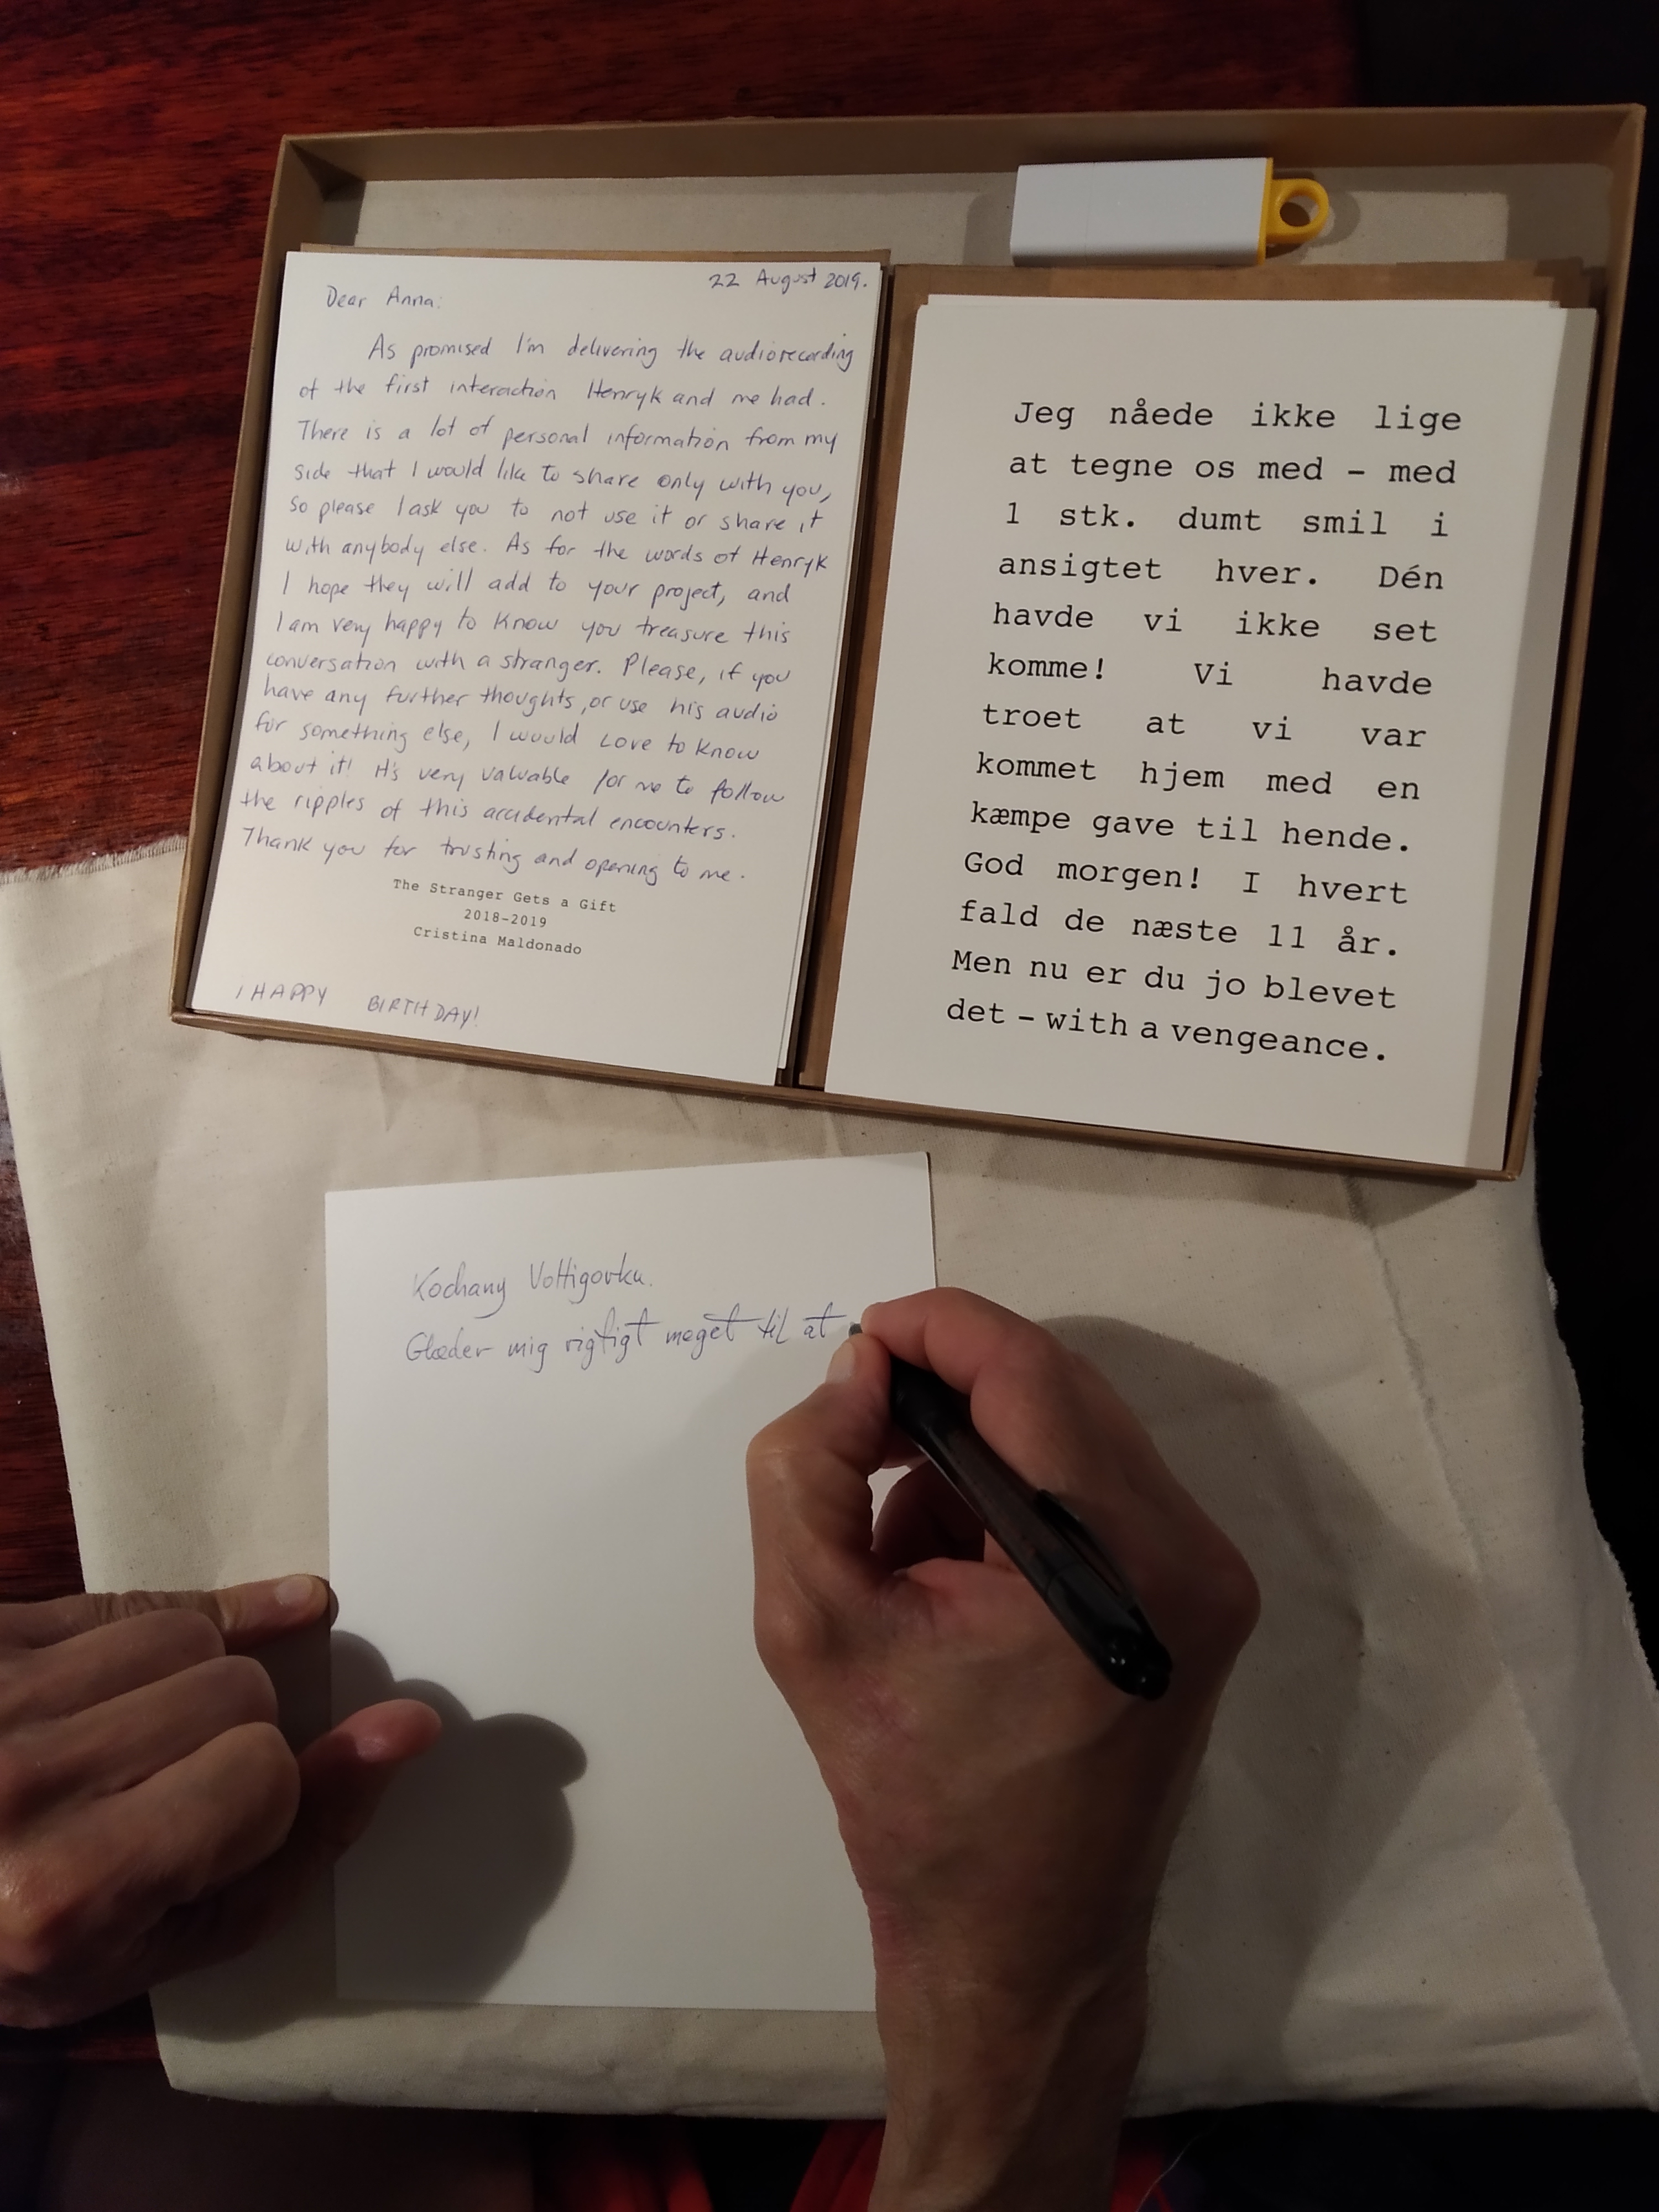 22 August 2019.
Dear Anna:
As promised I'm delivering the audiorecording
of the first interaction Henryk and me had.
There is a lot of personal information from my
side that I would like to share only with you,
so please I ask you to not use it or share it
with anybody else. As for the words of Henryk
I hope they will add to your project, and
I am very happy to know you treasure this
conversation with a stranger. Please, if you
have any further thoughts, or use his audio
for something else, I would love to know
about it! It's very valuable for me to follow
the ripples of this accidental encounters.
Thank you for trusting and opening to me.
The Stranger Gets a Gift
2018-2019
Cristina Maldonado
¡HAPPY BIRTHDAY!
Jeg nåede ikke lige
at tegne os med – med
1 stk. dumt smil i
ansigtet hver. Dén
havde vi ikke set
komme! Vi havde
troet at vi var
kommet hjem med en
kæmpe gave til hende.
God morgen! I hvert
fald de næste 11 år.
Men nu er du jo blevet
det – with a vengeance.
Kochany
Glæder mig rigtigt meget til at